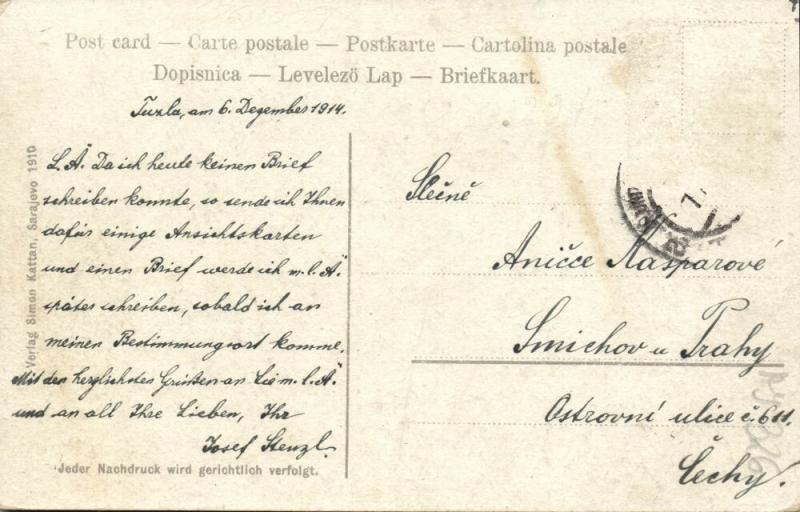 Post card — Carte postale — Postkarte — Cartolina postale
Dopisnica — Levelező Lap — Briefkaart.
Tuzla, am 6. Dezember 1914.
L. Ä. Da ich heute keinen Brief
schreiben konnte, so sende ich Ihnen
dafür einige Ansichtskarten
und einen Brief werde ich m. l. Ä
später schreiben, sobald ich an
meinen Bestimmungsort komme.
Mit den herzlichstes Grüßen an Sie m. l. Ä
und an all Ihre Lieben, Ihr
Josef Stenzl.
Jeder Nachdruck wird gerichtlich verfolgt.
Verlag Simon Kattan, Sarajevo 1910
Slečně
Aničce Kašparové
Smichov u Prahy
Ostrovní ulice č. 611
Čechy.